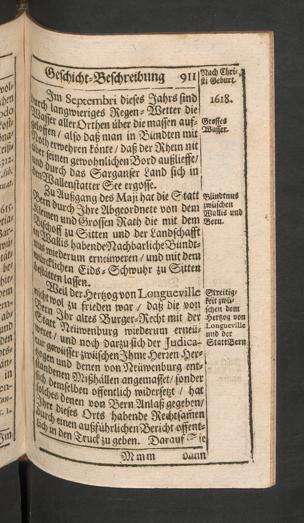 Geschicht-Beschreibung 911
Nach Chri-
sti Geburt.
1618.
Im Septembri dieses Jahrs sind
durch langwieriges Regen-Wetter die
Wasser aller Orthen über die massen auf-
geloffen / also daß man in Bündten mit
Noth erwehren könte / daß der Rhein nit
über seinen gewohnlichen Bord außlieffe /
und durch das Sarganser Land sich in
den Wallenstatter See ergosse.
Grosses
Wasser.
Zu Außgang des Maji hat die Statt
Bern durch Ihre Abgeordnete von dem
Kleinen und Grossen Rath die mit dem
Bischoff zu Sitten und der Landschafft
Wallis habende Nachbarliche Bündt-
nus wiederum erneuweren / und mit dem
würcklichen Eids-Schwuhr zu Sitten
bestäten lassen.
Bündtnus
zwüschen
Wallis und
Bern.
Weil der Hertzog von Longueville
nicht wol zu frieden war / daß die von
Bern Ihr altes Burger-Recht mit der
Statt Neuwenburg wiederum erneü-
weret / und noch darzu sich der Judica-
tur gewisser zwischen Ihme Herzen Her-
tzogen und denen von Neüwenburg ent-
standenen Mißhällen angemasset / sonder
sich demselben offentlich widersetzt / hat
solches denen von Bern Anlaß gegeben /
Ihre dieses Orts habende Rechtsamen
durch einen außführlichen Bericht offent-
lich in den Truck zu geben. Darauf Sie
Streitig-
keit zwü-
schen dem
Hertzog von
Longueville
und der
Statt Bern
Mmm dann